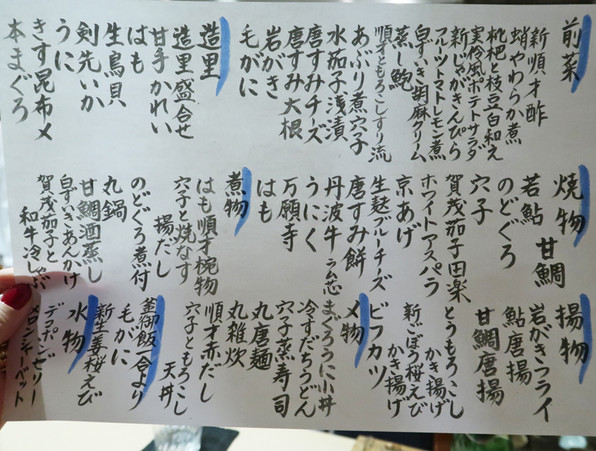 前菜
新順才酢
蛸やわらか煮
枇杷と枝豆白和え
実伶風ポテトサラダ
新じゃがきんぴら
フルーツトマトレモン煮
白ずいき胡麻クリーム
蒸し鮑
順才ともろこしすり流し
あぶり煮穴子
水茄子浅漬
唐すみチーズ
唐すみ大根
岩がき
毛がに
造里
造里盛合せ
甘手かれい
はも
生鳥貝
剣先いか
うに
きす昆布〆
本まぐろ
焼物
若鮎
甘鯛
のどぐろ
穴子
賀茂茄子田楽
ホワイトアスパラ
京あげ
生麩ブルーチーズ
唐すみ餅
丹波牛ラム芯
うにく
万願寺
はも
煮物
はも順才椀物
穴子と焼なす
揚だし
のどぐろ煮付
丸鍋
甘鯛酒蒸し
白ずいきあんかけ
賀茂茄子と
和牛冷しゃぶ
揚物
岩がきフライ
鮎唐揚
甘鯛唐揚
とうもろこし
かき揚げ
新ごぼう桜えび
かき揚げ
ビフカツ
〆物
まぐろうに小丼
冷すだちうどん
穴子蒸寿司
丸唐麺
丸雑炊
順才赤だし
穴子ともろこし
天丼
釜御飯一合より
毛がに
新生姜桜えび
水物
デコポンゼリー
メロンシャーベット